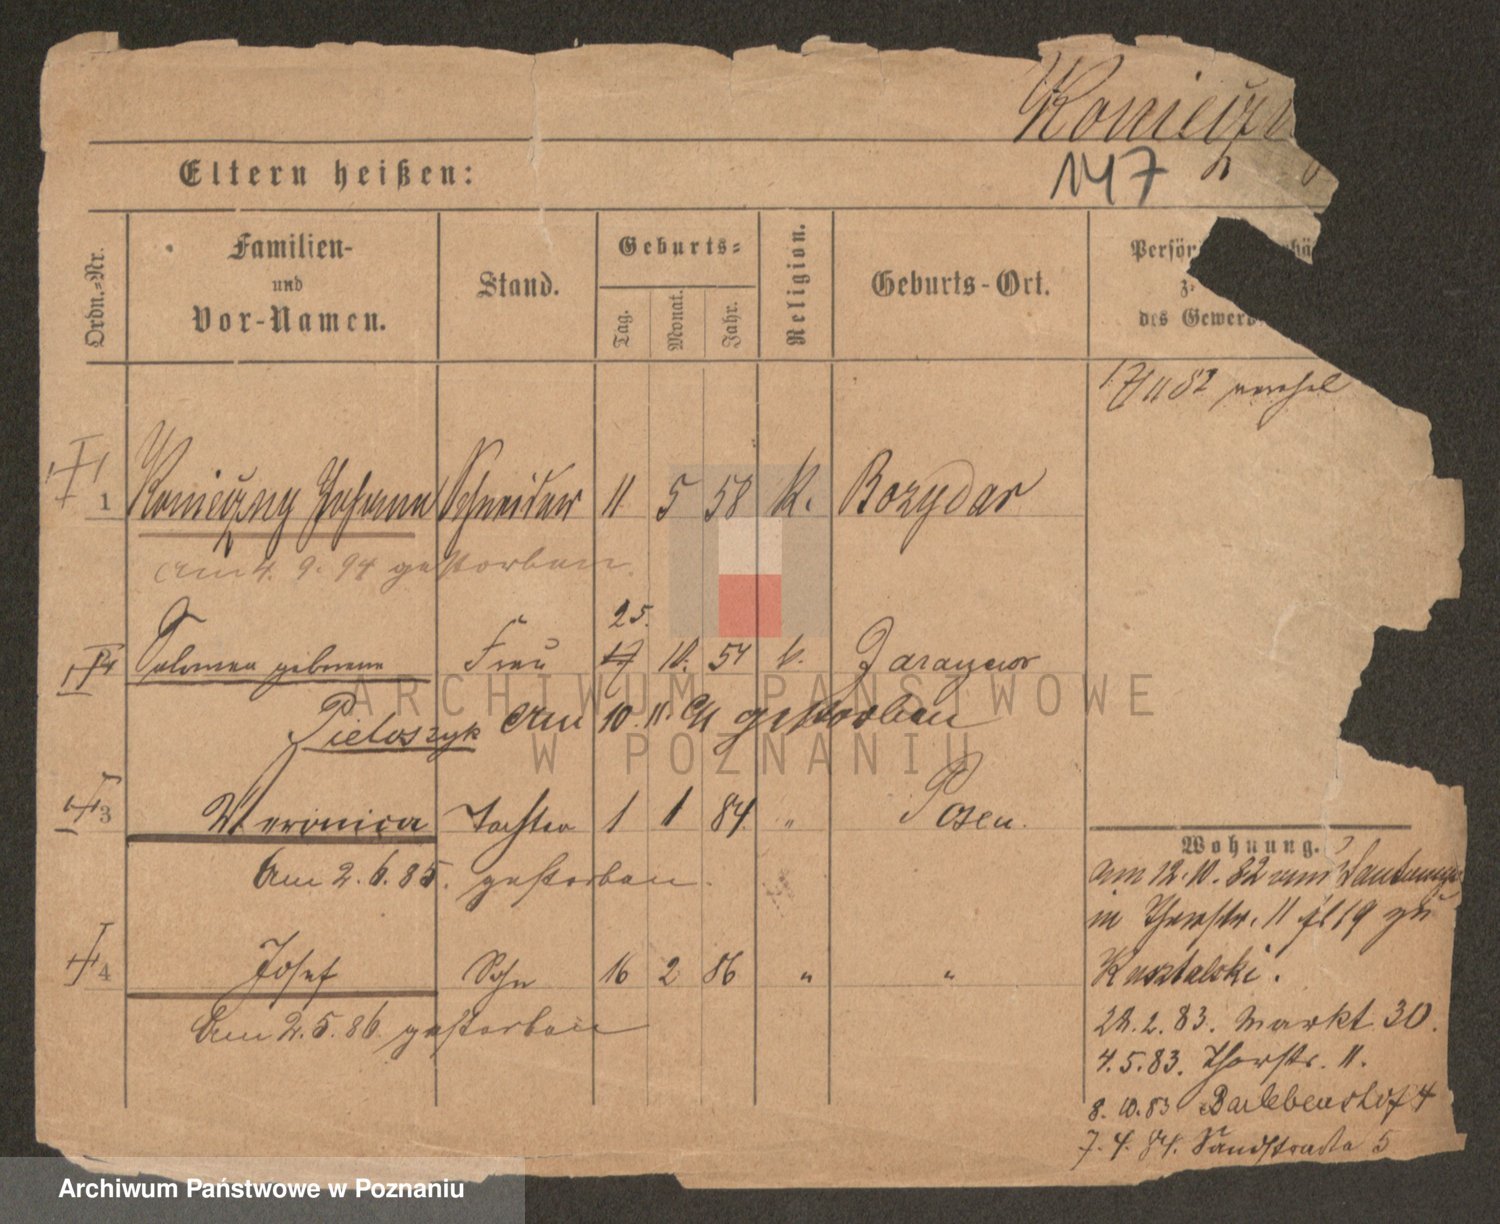 Konieczn
147
Eltern heißen:
Ordn.-Nr.
Familien-
und
Vor-Namen.
Stand.
Geburts-
Tag.
Monat.
Jahr.
Religion.
Geburts-Ort.
Persön
des Gewerb
82
1 Konieczny Johann Schneider 11 5 58 k. Bozydar
am 4. 9. 94 gestorben.
25.
Salomea geborene Frau 17 10. 54 k. Zaranzewo
Pietoszyk am 10. 11. 91 gestorben
3 Veronica Tochter 1 1 84 " Posen.
Am 2. 6. 85. gestorben.
4 Josef Sohn 16 2 86 " "
Am 2. 5. 86. gestorben
Wohnung.
am 12. 10. 82 von
in Thorstr. 11 19 zu
Kasztelski.
28. 2. 83. Markt 30.
4. 5. 83. Thorstr. 11.
8. 10. 83 Barlebenshof 4
7. 4. 84. Sandstraße 5
ARCHIWUM PAŃSTWOWE
W POZNANIU
Archiwum Państwowe w Poznaniu